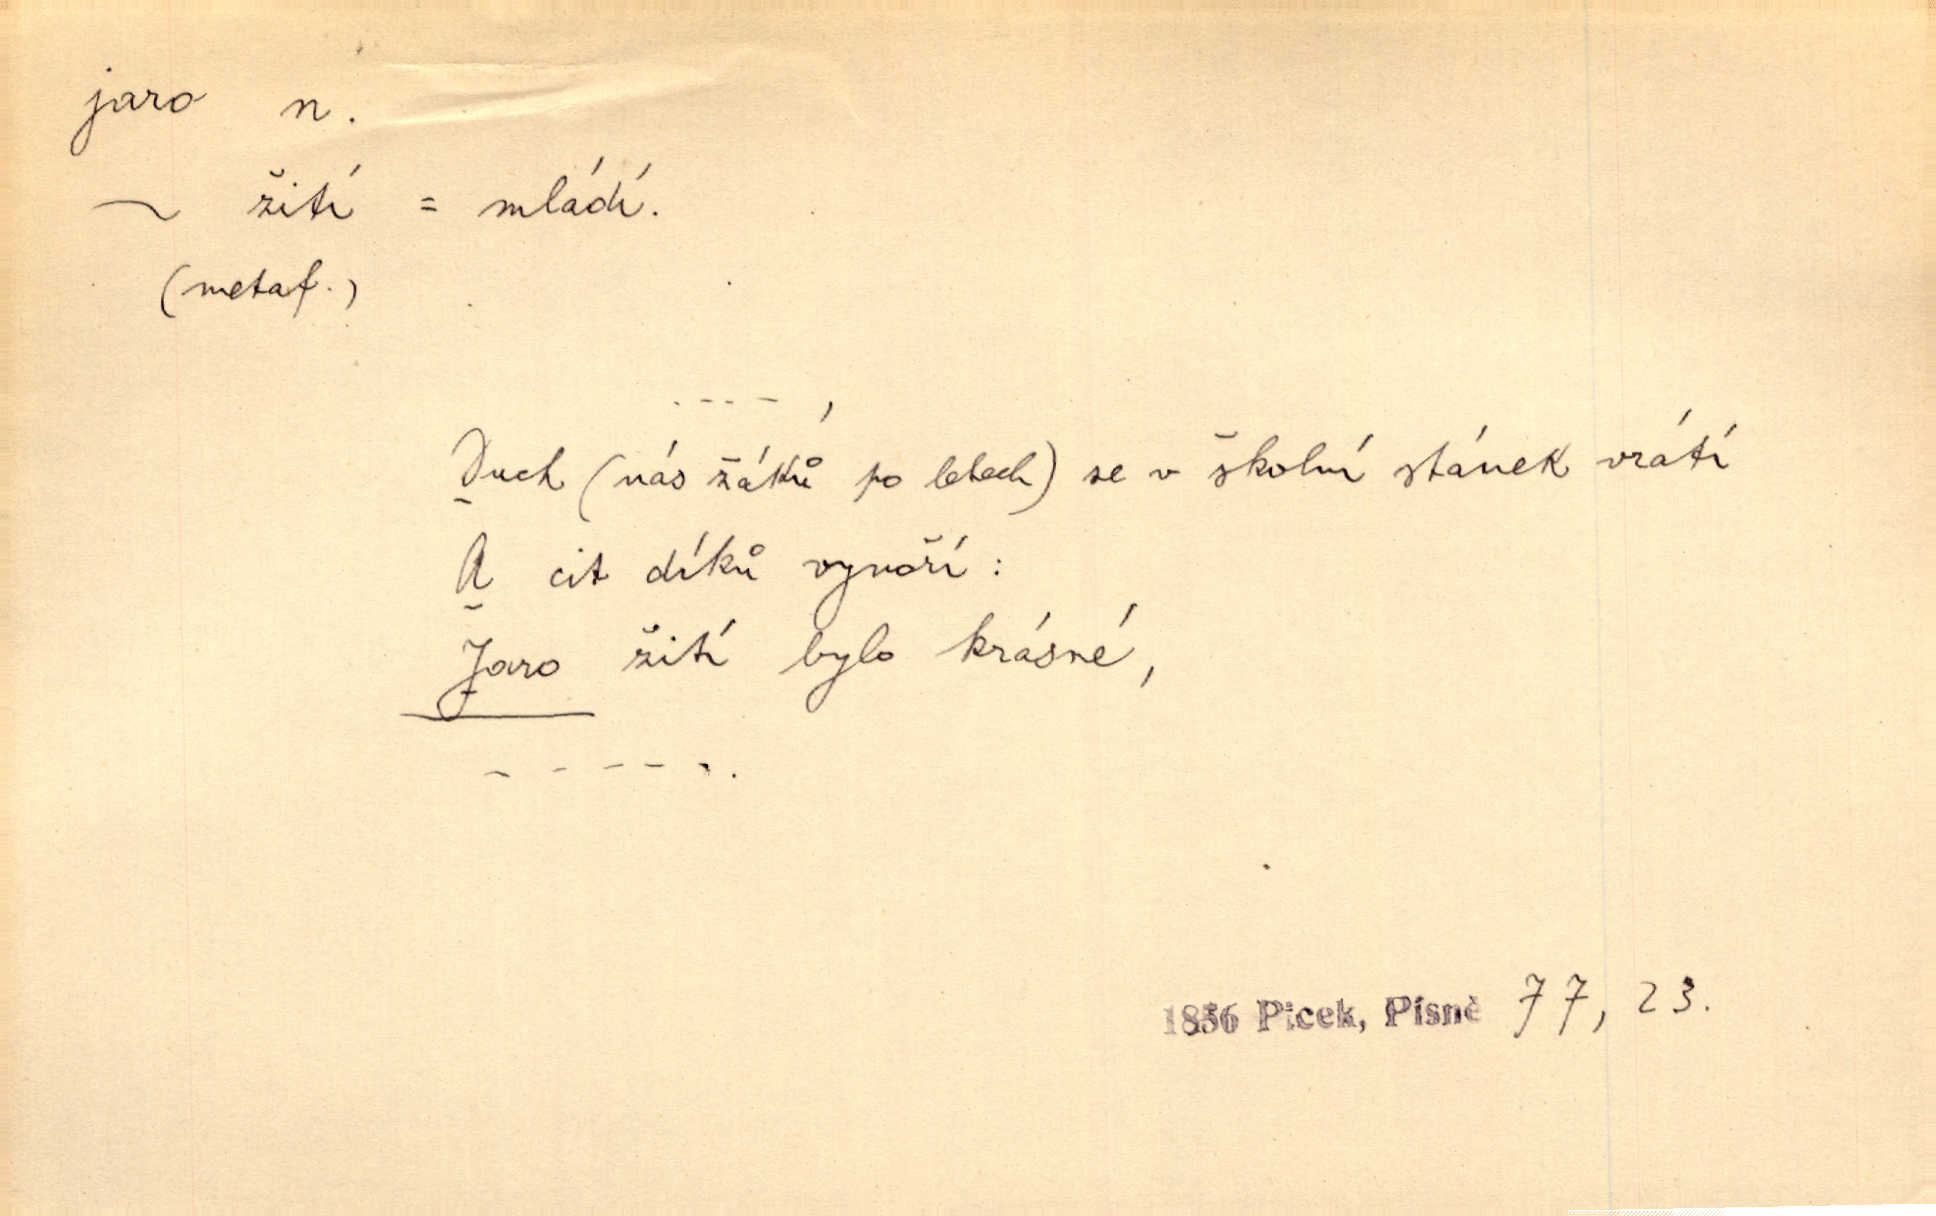 jaro n.
~ žití = mládí.
(metaf.)
. - - - - ,
Duch (nás žáků po letech) se v školní stánek vrátí
A cit díků vynoří:
Jaro žití bylo krásné,
- - - - - .
1856 Picek, Písně 77, 23.